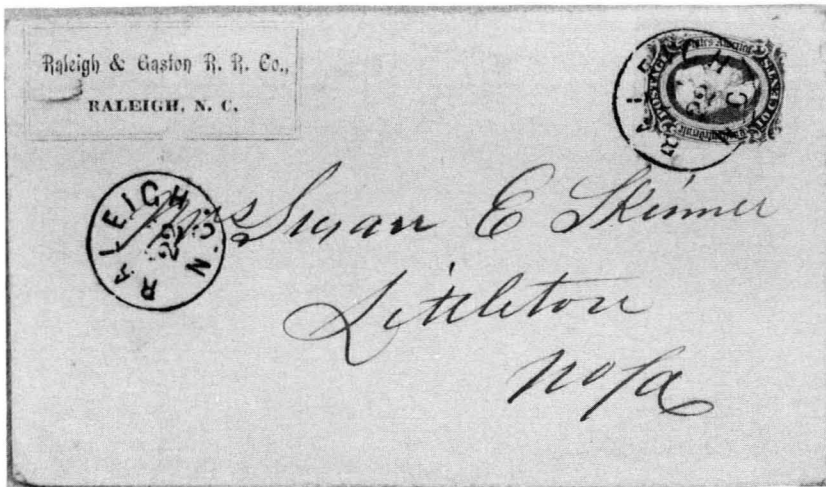 Raleigh & Gaston R. R. Co.,
RALEIGH, N. C.
RALEIGH N.C.
22
RALEIGH N.C.
22
Mrs Susan E Skinner
Littleton
No Ca